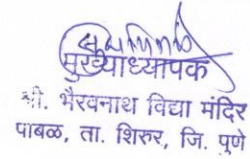 मुख्याध्यापक
श्री. भैरवनाथ विद्या मंदिर
पाबळ, ता. शिरुर, जि. पुणे